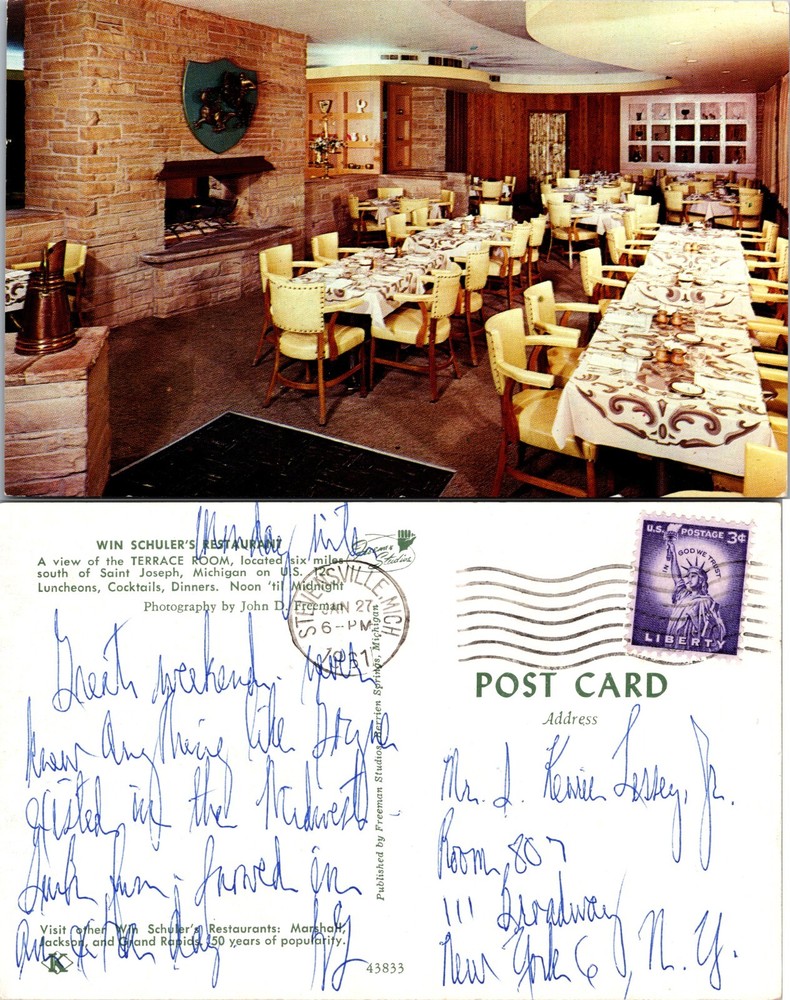 WIN SCHULER'S RESTAURANT
A view of the TERRACE ROOM, located six miles
south of Saint Joseph, Michigan on U.S. 12.
Luncheons, Cocktails, Dinners. Noon 'til Midnight
Photography by John D. Freeman
Freeman Studios
STEVENSVILLE, MICH
JAN 27
6 - PM
U.S. POSTAGE 3¢
IN GOD WE TRUST
LIBERTY
Monday nite
Great weekend. Never
know anything like
existed in the Midwest.
in
an day
Visit other Win Schuler's Restaurants: Marshall,
Jackson, and Grand Rapids. 50 years of popularity.
K
43833
Published by Freeman Studios, Berrien Springs, Michigan
POST CARD
Address
Mr. Jr.
Room 807
111 Broadway
New York 6, N. Y.